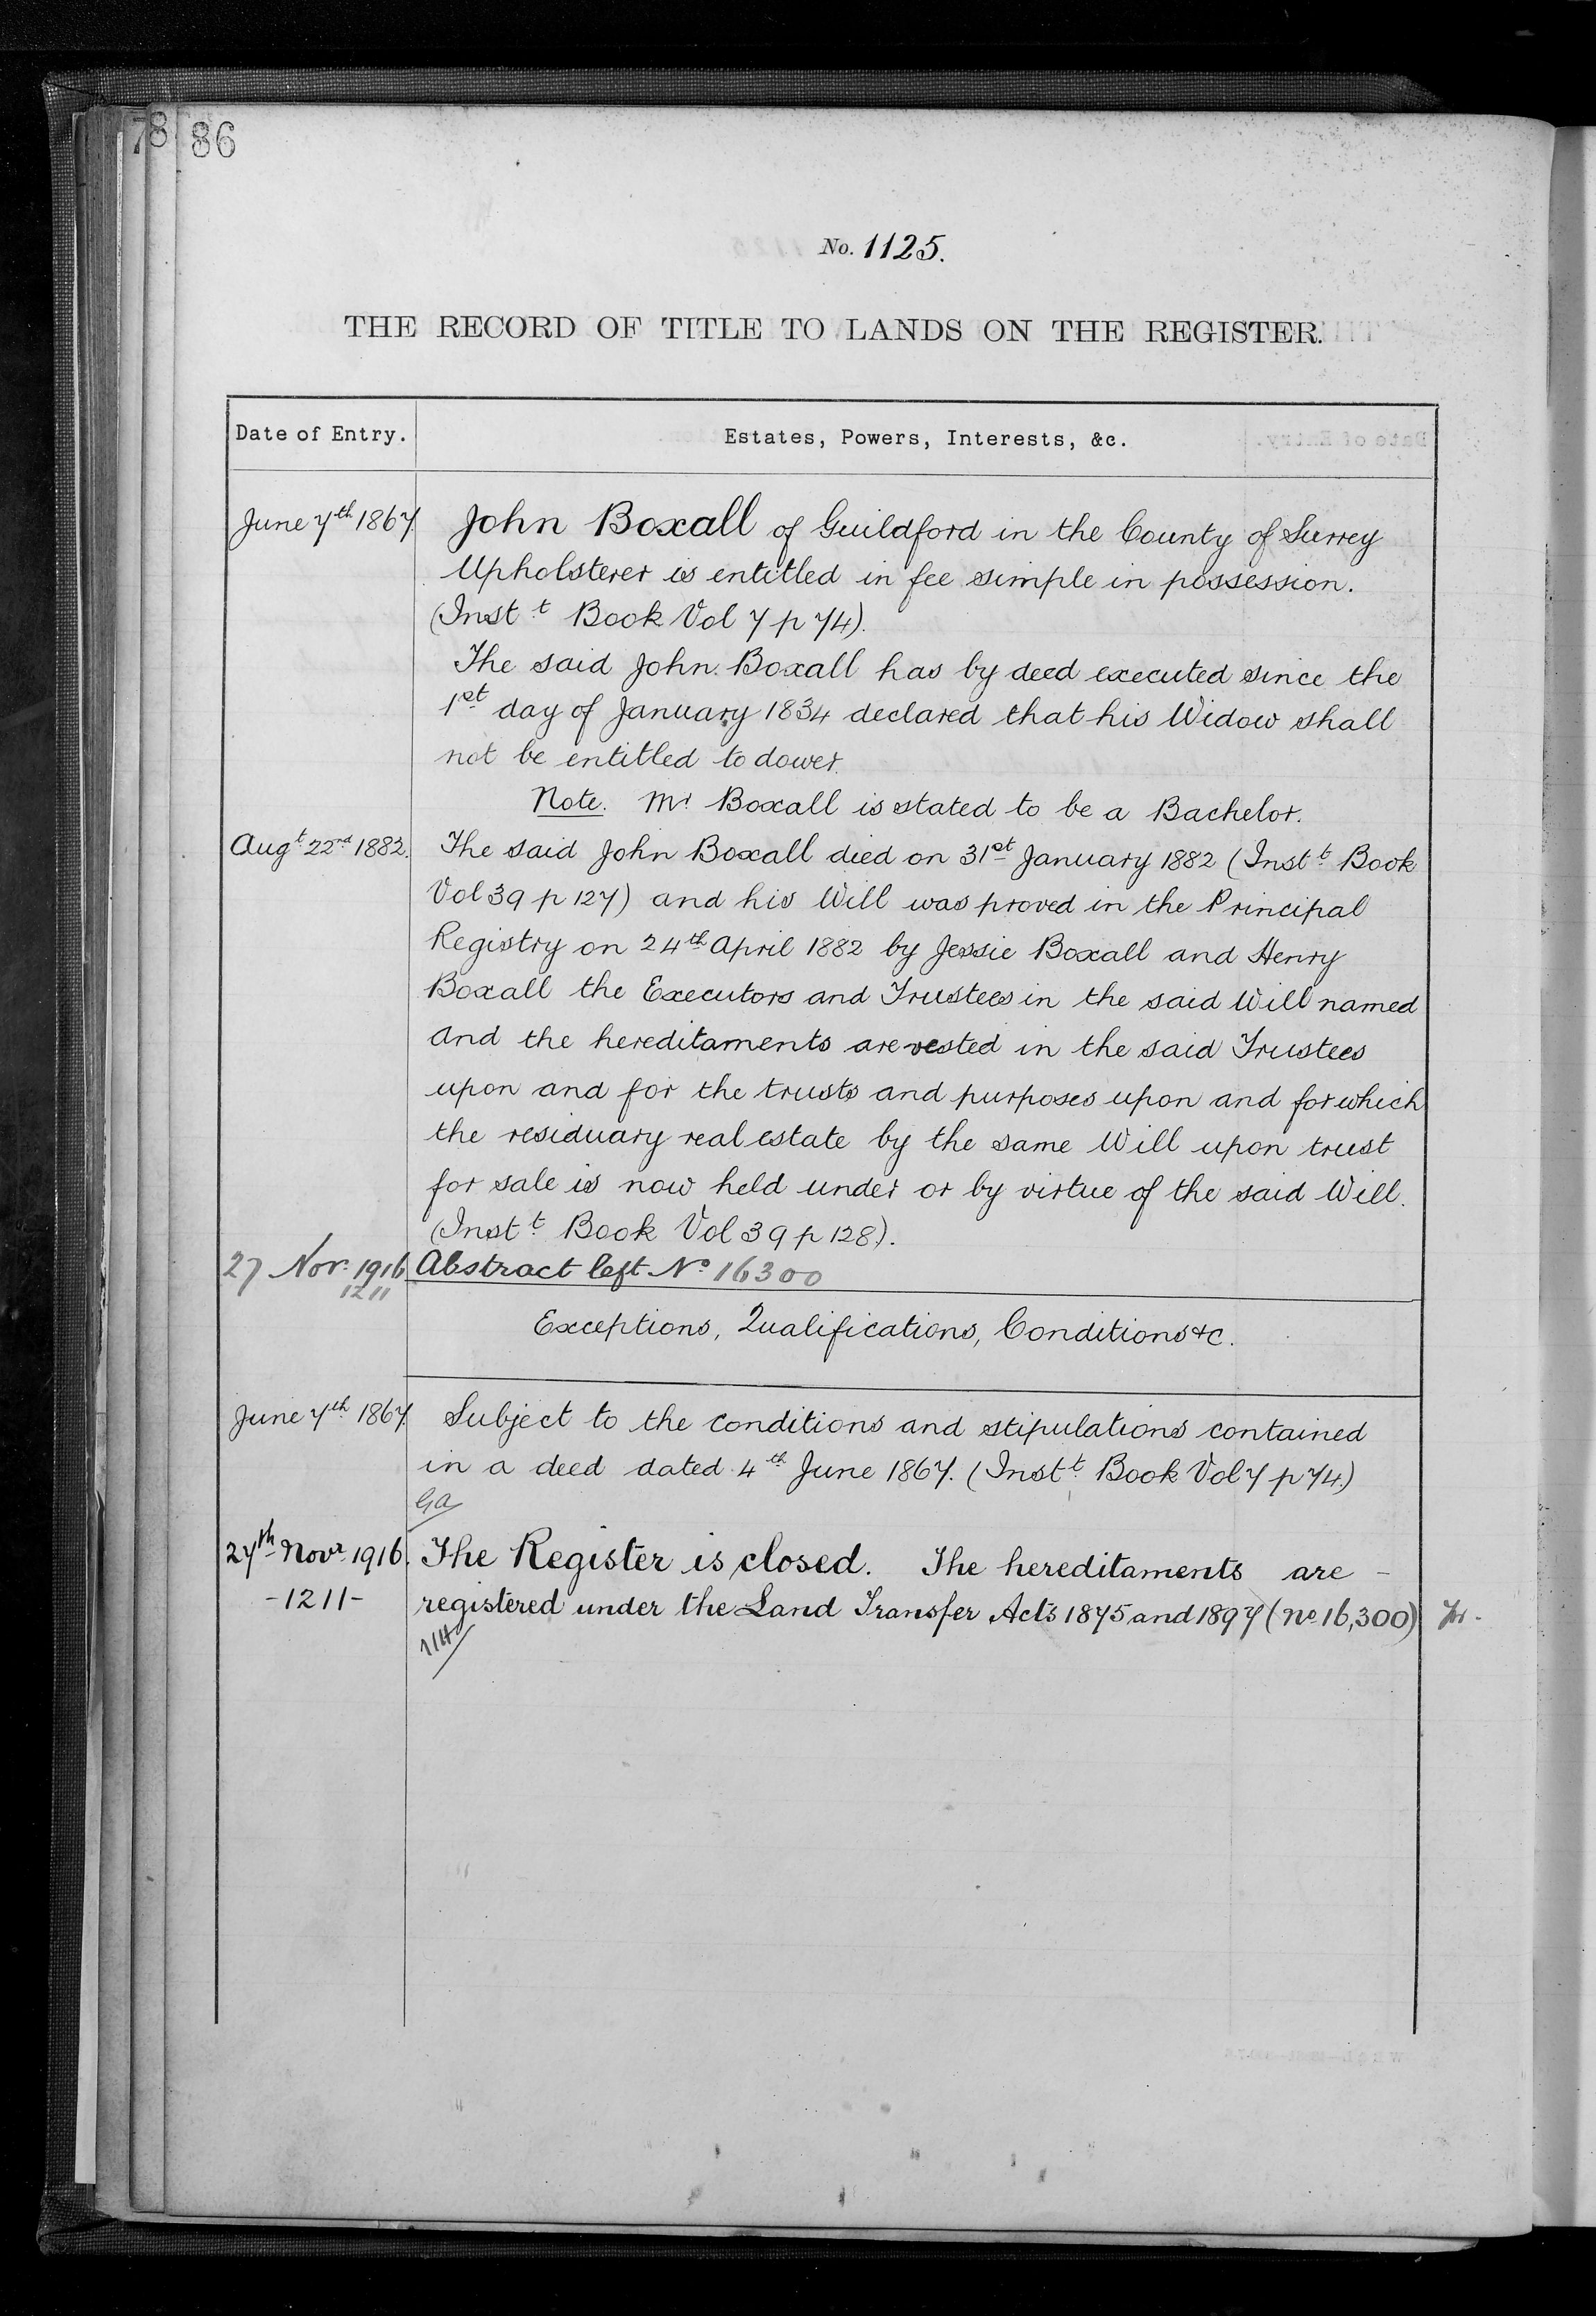 78 86
No. 1125.
THE RECORD OF TITLE TO LANDS ON THE REGISTER.
Date of Entry. Estates, Powers, Interests, &c.
June 7th 1867 John Boxall of Guildford in the County of Surrey
Upholsterer is entitled in fee simple in possession.
(Instt Book Vol 7 p 74).
The said John Boxall has by deed executed since the
1st day of January 1834 declared that his Widow shall
not be entitled to dower.
Note. Mr Boxall is stated to be a Bachelor.
Augt 22nd 1882. The said John Boxall died on 31st January 1882 (Instt Book
Vol 39 p 127) and his Will was proved in the Principal
Registry on 24th April 1882 by Jessie Boxall and Henry
Boxall the Executors and Trustees in the said Will named
and the hereditaments are vested in the said Trustees
upon and for the trusts and purposes upon and for which
the residuary real estate by the same Will upon trust
for sale is now held under or by virtue of the said Will.
(Instt Book Vol 39 p 128).
27 Nov. 1916 Abstract left No 16300
1211
Exceptions, Qualifications, Conditions &c.
June 7th 1867 Subject to the conditions and stipulations contained
in a deed dated 4th June 1867. (Instt Book Vol 7 p 74.)
27th Novr 1916. The Register is closed. The hereditaments are -
-1211- registered under the Land Transfer Acts 1875 and 1897 (No 16,300)